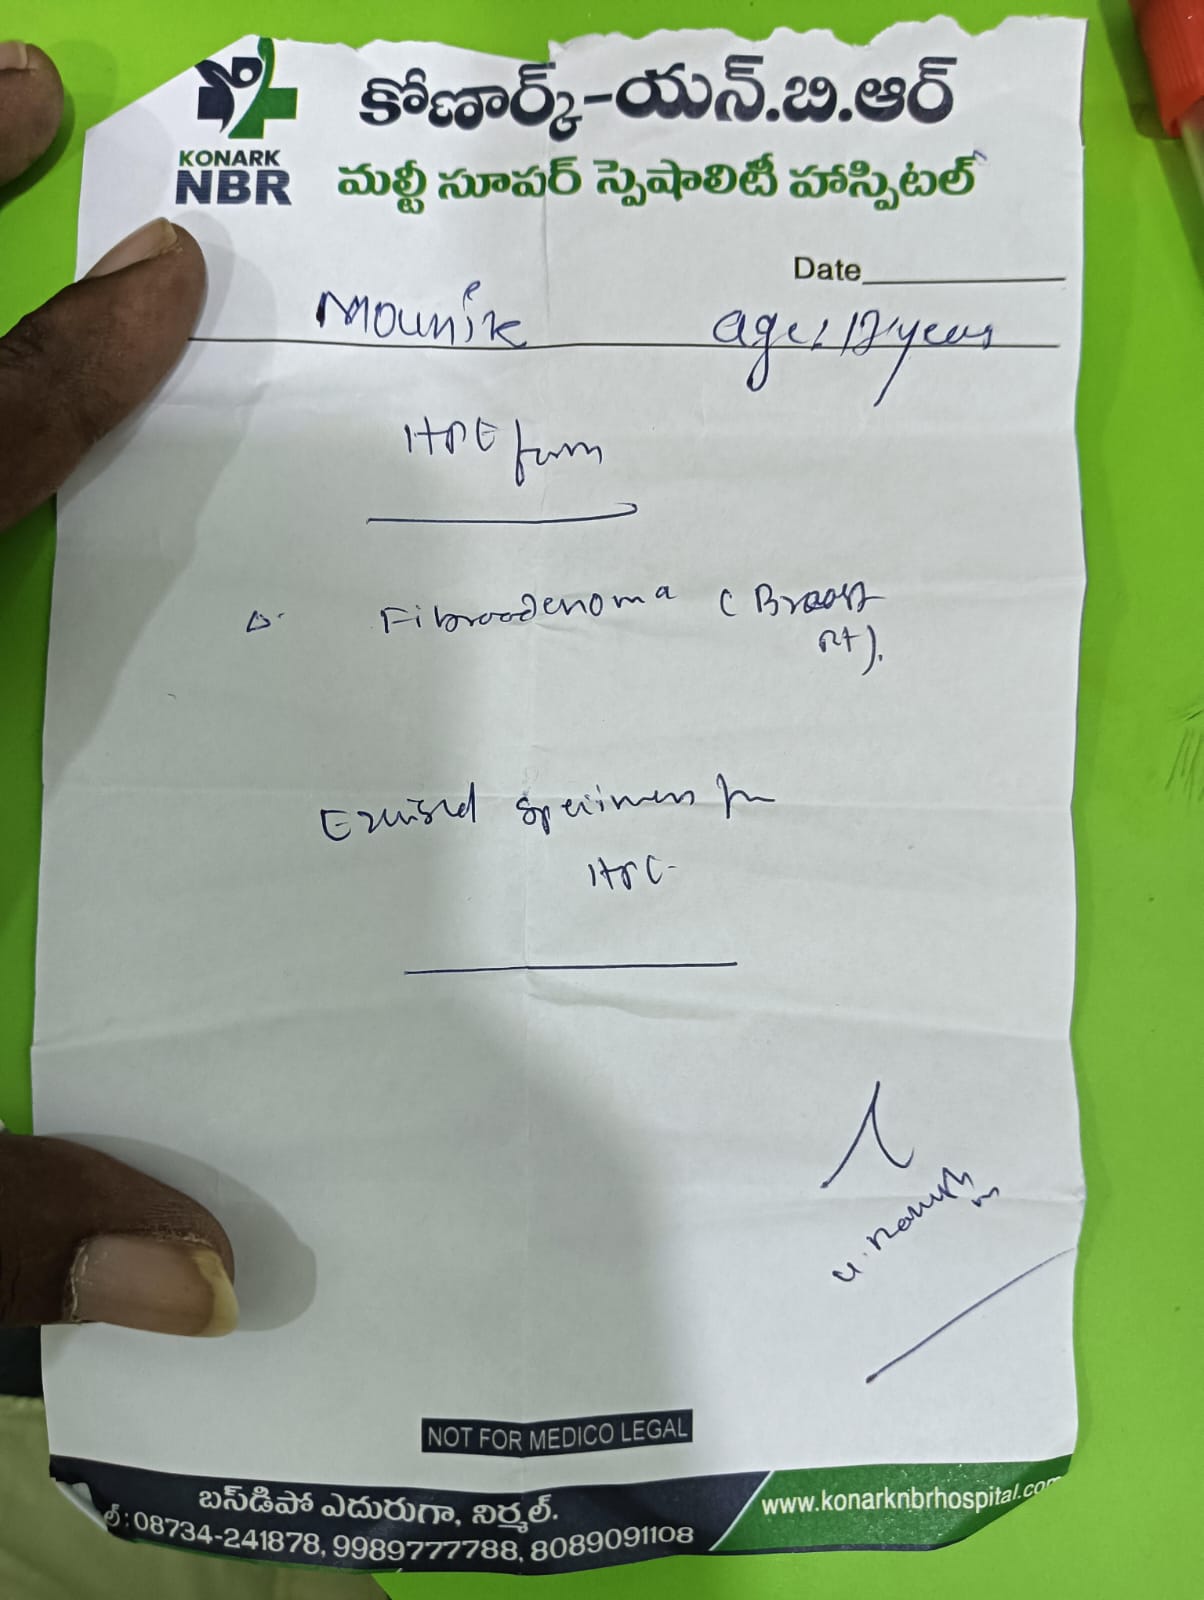 కోణార్క్-యన్.బి.ఆర్
KONARK
NBR
మల్టీ సూపర్ స్పెషాలిటీ హాస్పిటల్
Date
Mounik age: 12 years
HPE form
Δ. Fibroadenoma (Breast
Rt).
Excised specimen for
HPE
NOT FOR MEDICO LEGAL
బస్‌డిపో ఎదురుగా, నిర్మల్.
ల్: 08734-241878, 9989777788, 8089091108
www.konarknbrhospital.com